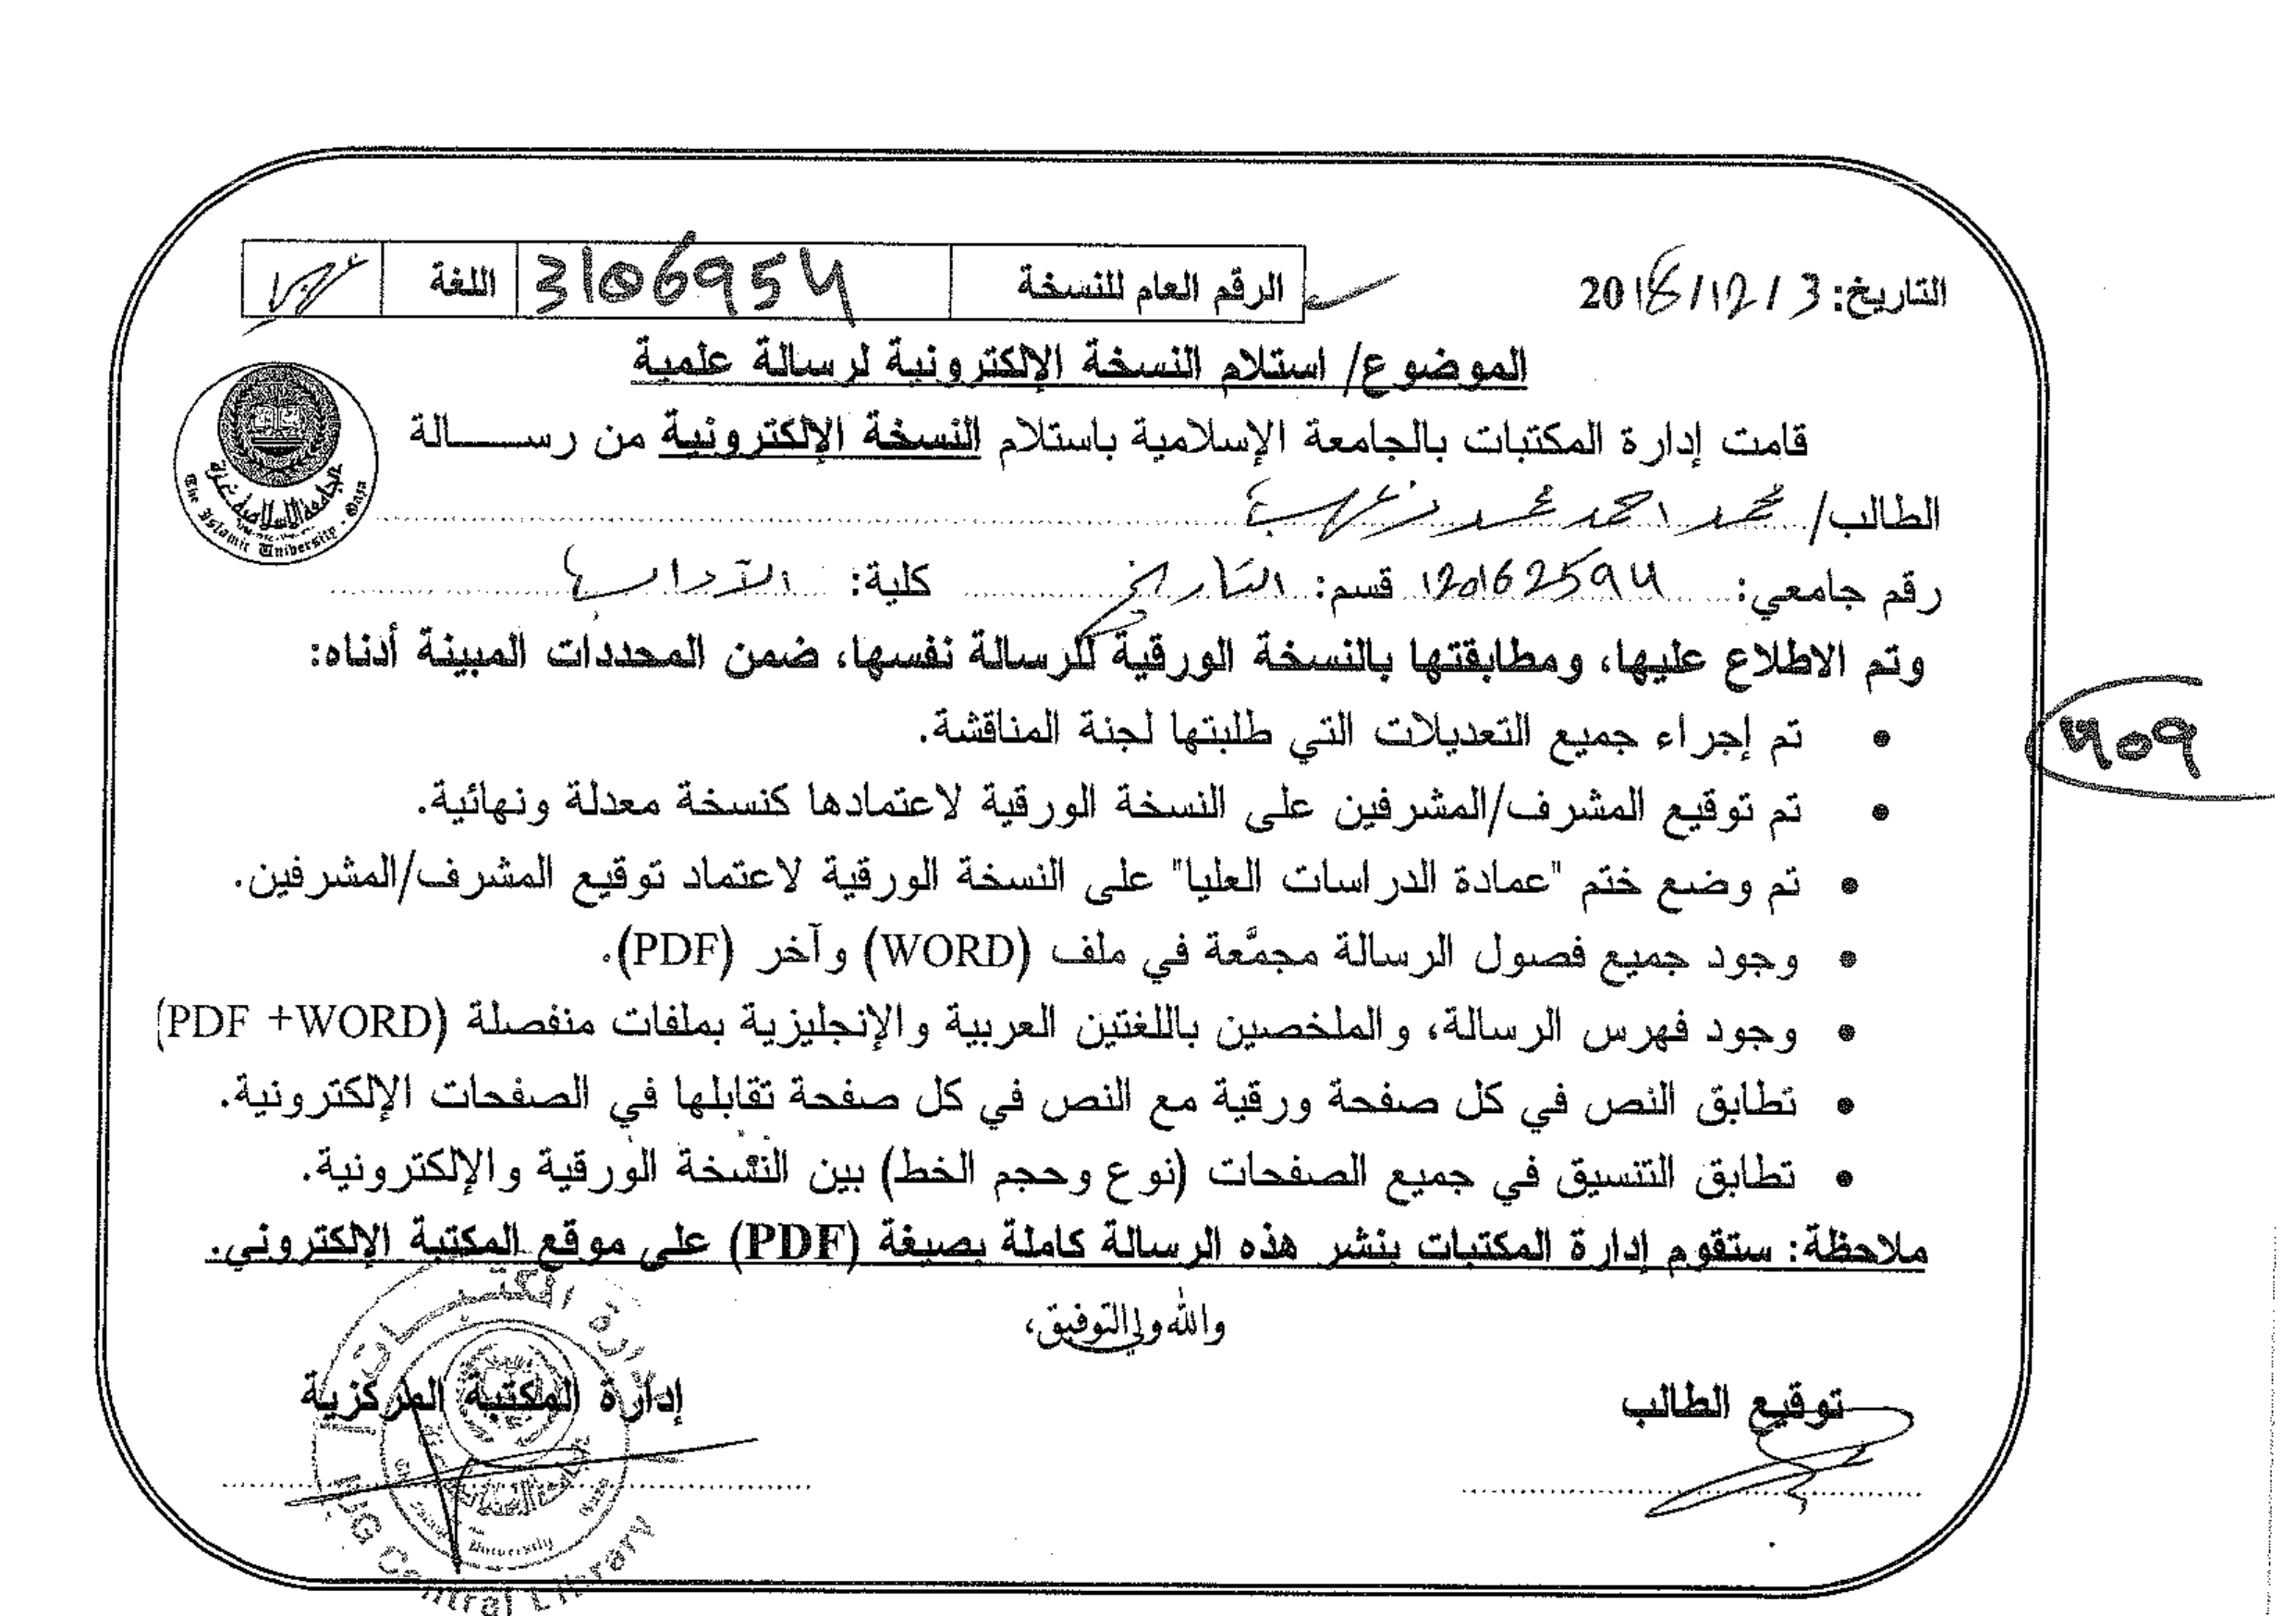 التاريخ: 3 / 12 / 2018
الرقم العام للنسخة 3106954 اللغة عربي
الموضوع/ استلام النسخة الإلكترونية لرسالة علمية
قامت إدارة المكتبات بالجامعة الإسلامية باستلام النسخة الإلكترونية من رســـالة
الطالب/ محمد احمد محمد
رقم جامعي: 120162594 قسم: التاريخ كلية: الآداب
وتم الاطلاع عليها، ومطابقتها بالنسخة الورقية للرسالة نفسها، ضمن المحددات المبينة أدناه:
• تم إجراء جميع التعديلات التي طلبتها لجنة المناقشة.
• تم توقيع المشرف/المشرفين على النسخة الورقية لاعتمادها كنسخة معدلة ونهائية.
• تم وضع ختم "عمادة الدراسات العليا" على النسخة الورقية لاعتماد توقيع المشرف/المشرفين.
• وجود جميع فصول الرسالة مجمَّعة في ملف (WORD) وآخر (PDF).
• وجود فهرس الرسالة، والملخصين باللغتين العربية والإنجليزية بملفات منفصلة (PDF +WORD)
• تطابق النص في كل صفحة ورقية مع النص في كل صفحة تقابلها في الصفحات الإلكترونية.
• تطابق التنسيق في جميع الصفحات (نوع وحجم الخط) بين النسخة الورقية والإلكترونية.
ملاحظة: ستقوم إدارة المكتبات بنشر هذه الرسالة كاملة بصيغة (PDF) على موقع المكتبة الإلكتروني.
والله ولي التوفيق،
توقيع الطالب
إدارة المكتبة المركزية
الجامعة الإسلامية غزة
The Islamic University - Gaza
إدارة المكتبات
IUG Central Library